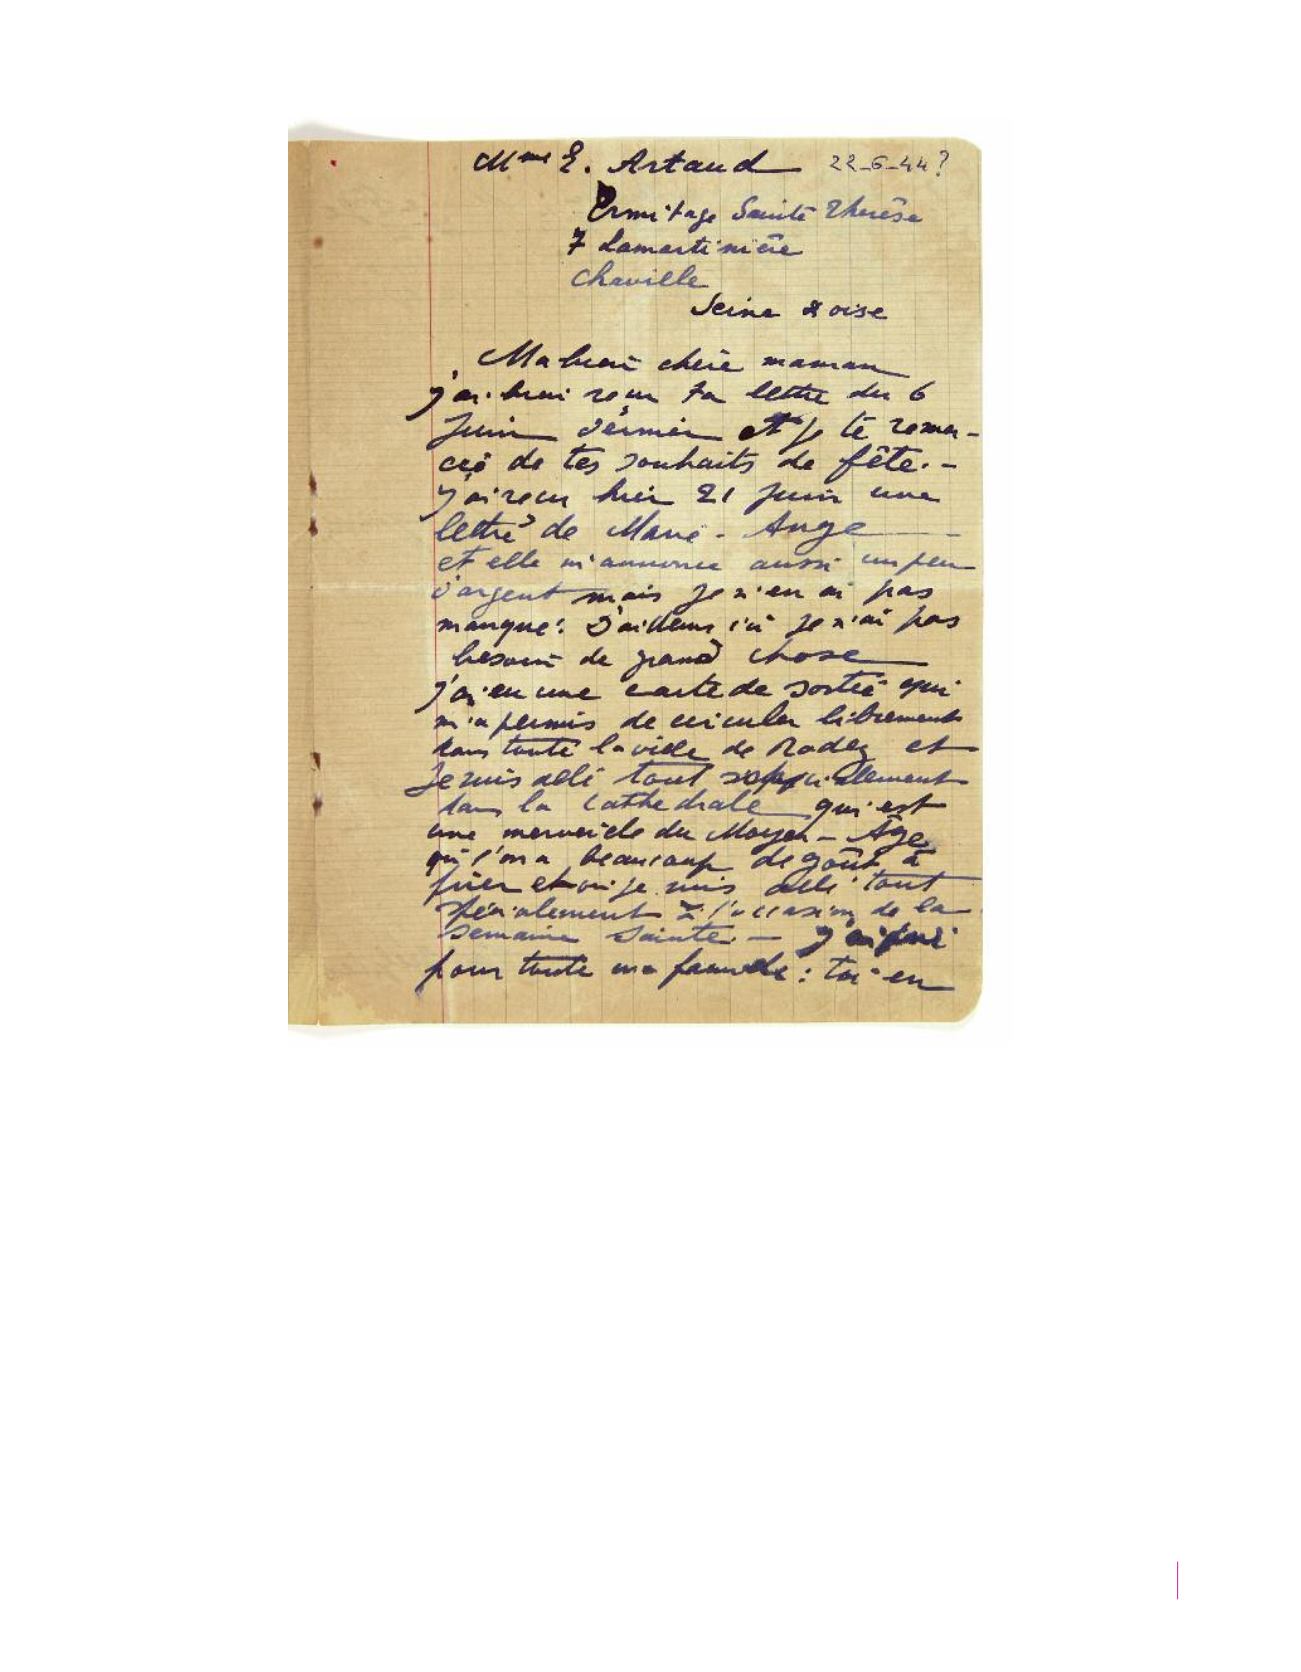 Mme E. Artaud 22-6-44?
Ermitage Sainte Therèse
7 Lamartinière
Chaville
Seine & oise
Ma bien chère maman
j'ai bien reçu ta lettre du 6
Juin dernier et je te remer-
cie de tes souhaits de fête. -
J'ai reçu hier 21 Juin une
lettre de Marie-Ange
et elle m'annonce aussi un peu
d'argent mais je n'en ai pas
manqué. D'ailleurs ici je n'ai pas
besoin de grand chose
j'ai eu une carte de sortie qui
m'a permis de circuler librement
dans toute la ville de Rodez et
je suis allé tout spécialement
dans la Cathedrale qui est
une merveille du Moyen-Âge
où l'on a beaucoup de goût à
prier et où je suis allé tout
spécialement à l'occasion de la
semaine Sainte. - J'ai prié
pour toute ma famille : toi en